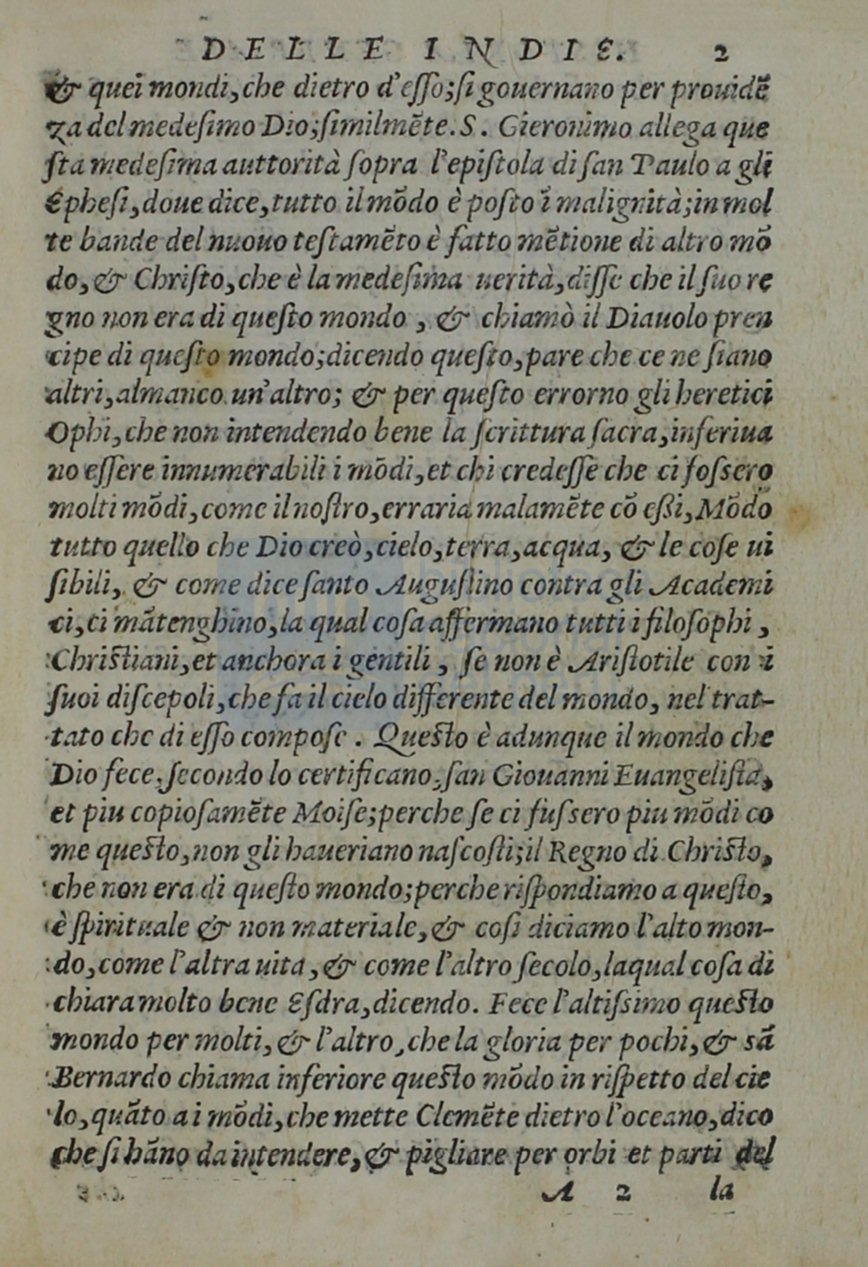 DELLE INDIE. 2
& quei mondi, che dietro d'eſſo; ſi gouernano per prouidẽ
za del medeſimo Dio; ſimilmẽte. S. Gieronimo allega que
ſta medeſima auttorità ſopra l'epiſtola di ſan Paulo a gli
Epheſi, doue dice, tutto il mõdo è poſto ĩ malignità; in mol
te bande del nuouo teſtamẽto è fatto mẽtione di altro mõ
do, & Chriſto, che è la medeſima uerità, diſſe che il ſuo re
gno non era di queſto mondo, & chiamò il Diauolo pren
cipe di queſto mondo; dicendo queſto, pare che ce ne ſiano
altri, almanco un'altro; & per queſto errorno gli heretici
Ophi, che non intendendo bene la ſcrittura ſacra, inferiua
no eſſere innumerabili i mõdi, et chi credeſſe che ci foſsero
molti mõdi, come il noſtro, erraria malamẽte cõ eßi, Mõdo
tutto quello che Dio creò, cielo, terra, acqua, & le coſe ui
ſibili, & come dice ſanto Auguſtino contra gli Academi
ci, ci mãtenghino, la qual coſa affermano tutti i filoſophi,
Chriſtiani, et anchora i gentili, ſe non è Ariſtotile con i
ſuoi diſcepoli, che fa il cielo differente del mondo, nel trat-
tato che di eſſo compoſe. Queſto è adunque il mondo che
Dio fece, ſecondo lo certificano, ſan Giouanni Euangeliſta,
et piu copioſamẽte Moiſe; perche ſe ci fuſsero piu mõdi co
me queſto, non gli haueriano naſcoſti; il Regno di Chriſto,
che non era di queſto mondo; perche riſpondiamo a queſto,
è ſpirituale & non materiale, & coſi diciamo l'alto mon-
do, come l'altra uita, & come l'altro ſecolo, laqual coſa di
chiara molto bene Eſdra, dicendo. Fece l'altiſsimo queſto
mondo per molti, & l'altro, che la gloria per pochi, & sã
Bernardo chiama inferiore queſto mõdo in riſpetto del cie
lo, quãto a i mõdi, che mette Clemẽte dietro l'oceano, dico
che ſi hãno da intendere, & pigliare per orbi et parti del
A 2 la